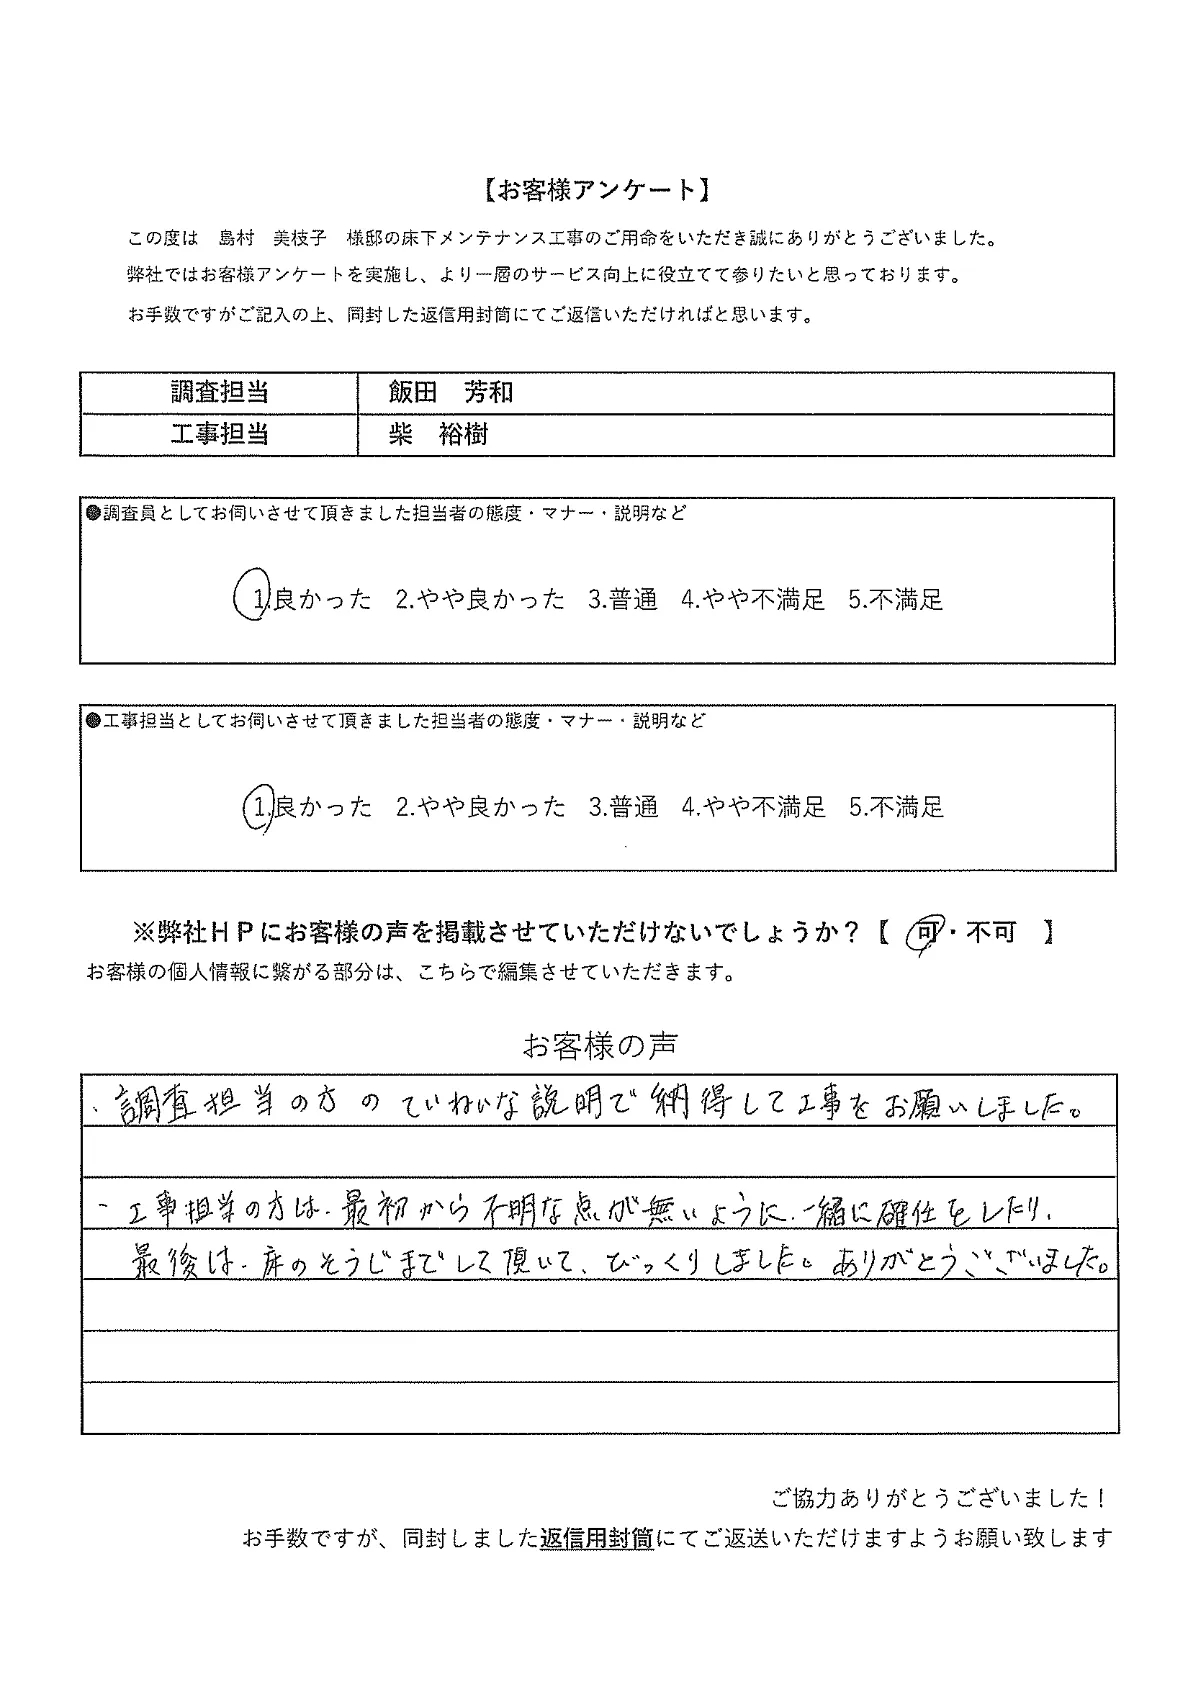 【お客様アンケート】
この度は　島村　美枝子　様邸の床下メンテナンス工事のご用命をいただき誠にありがとうございました。
弊社ではお客様アンケートを実施し、より一層のサービス向上に役立てて参りたいと思っております。
お手数ですがご記入の上、同封した返信用封筒にてご返信いただければと思います。
調査担当　飯田　芳和
工事担当　柴　裕樹
●調査員としてお伺いさせて頂きました担当者の態度・マナー・説明など
1.良かった　2.やや良かった　3.普通　4.やや不満足　5.不満足
●工事担当としてお伺いさせて頂きました担当者の態度・マナー・説明など
1.良かった　2.やや良かった　3.普通　4.やや不満足　5.不満足
※弊社ＨＰにお客様の声を掲載させていただけないでしょうか？【　可・不可　】
お客様の個人情報に繋がる部分は、こちらで編集させていただきます。
お客様の声
・調査担当の方のていねいな説明で納得して工事をお願いしました。
・工事担当の方は、最初から不明な点が無いように、一緒に確任をしたり、
最後は、床のそうじまでして頂いて、びっくりしました。ありがとうございました。
ご協力ありがとうございました！
お手数ですが、同封しました返信用封筒にてご返送いただけますようお願い致します